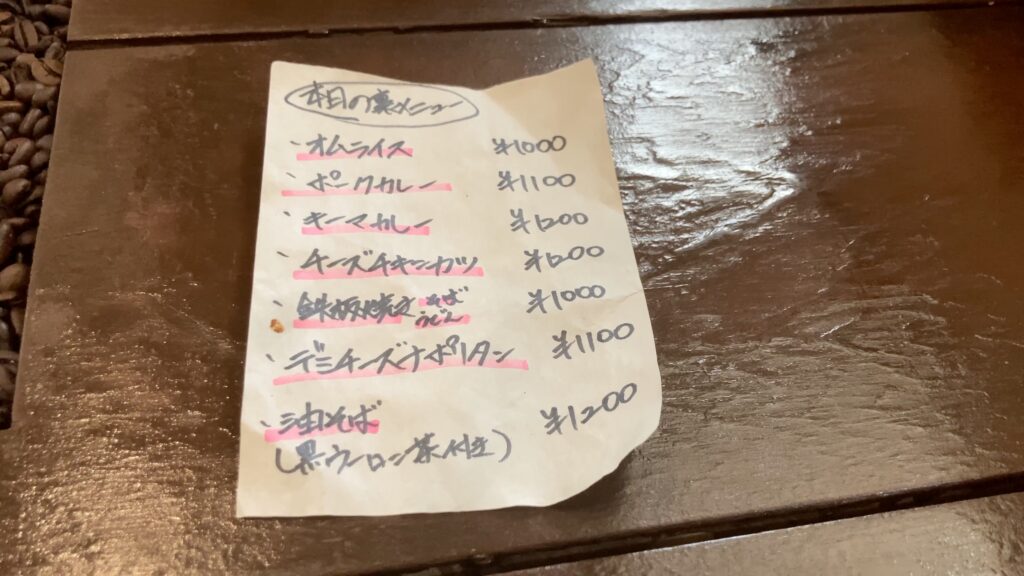 本日の裏メニュー
・オムライス ¥1000
・ポークカレー ¥1100
・キーマカレー ¥1200
・チーズチキンカツ ¥1200
・鉄板焼き そば うどん ¥1000
・デミチーズナポリタン ¥1100
・油そば ¥1200
(黒ウーロン茶付き)